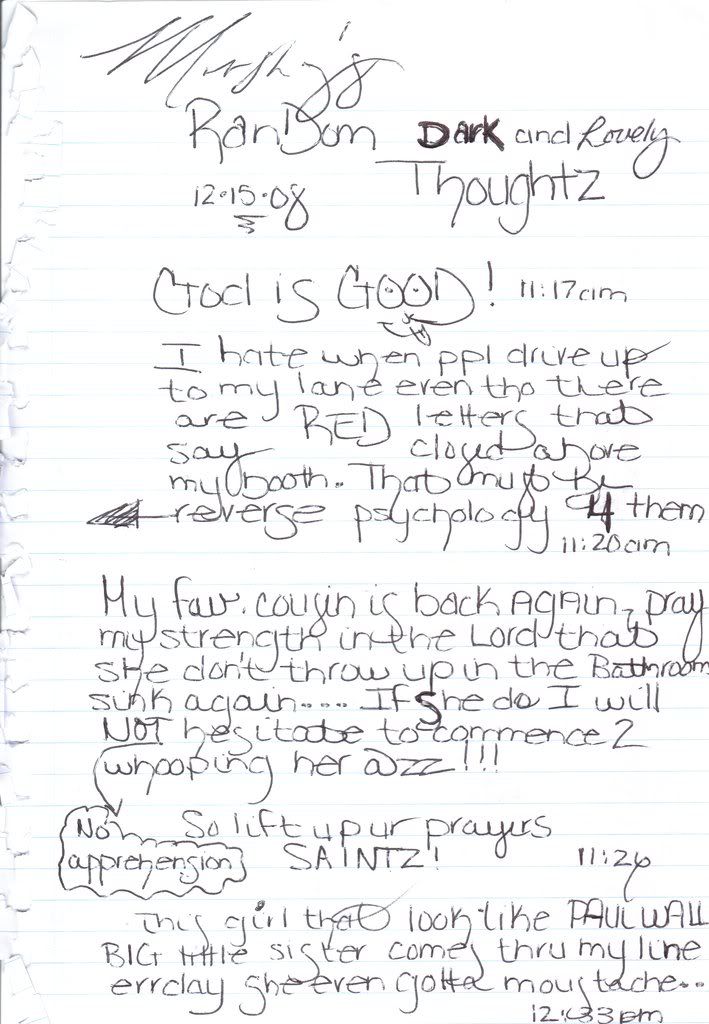 Mushy's
RanDom Dark and Lovely
12.15.08 Thoughtz
God is GOOD! 11:17am
I hate when ppl drive up
to my lane even tho there
are RED letters that
say closed above
my booth. That must be
reverse psychology 4 them
11:20am
My fav. cousin is back AGAIN, pray
my strength in the Lord that
she don't throw up in the Bathroom
sink again.... If She do I will
NOT hesitate to commence 2
whooping her azz!!!
No So lift up ur prayers
apprehension SAINTZ! 11:26
This girl that look like PAUL WALL
BIG little sister comes thru my line
errday she even gotta moustache...
12:33pm